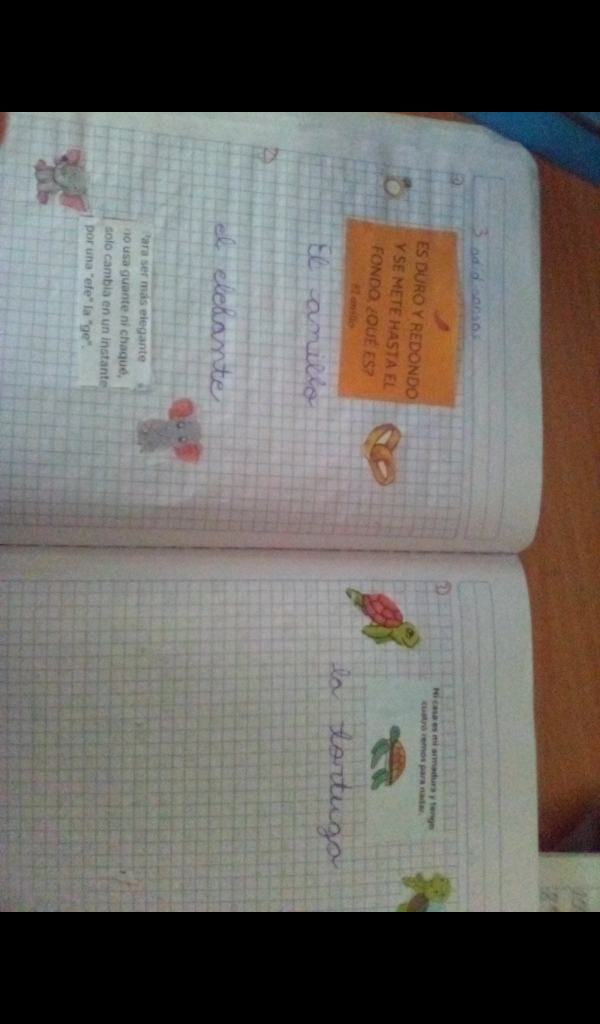 3 adivinanzas
1)
ES DURO Y REDONDO
Y SE METE HASTA EL
FONDO, ¿QUÉ ES?
El anillo
El anillo
2)
el elefante
Para ser más elegante
no usa guante ni chaqué,
solo cambia en un instante
por una "efe" la "ge"
3)
Mi casa es mi armadura y tengo
cuatro remos para nadar.
la tortuga